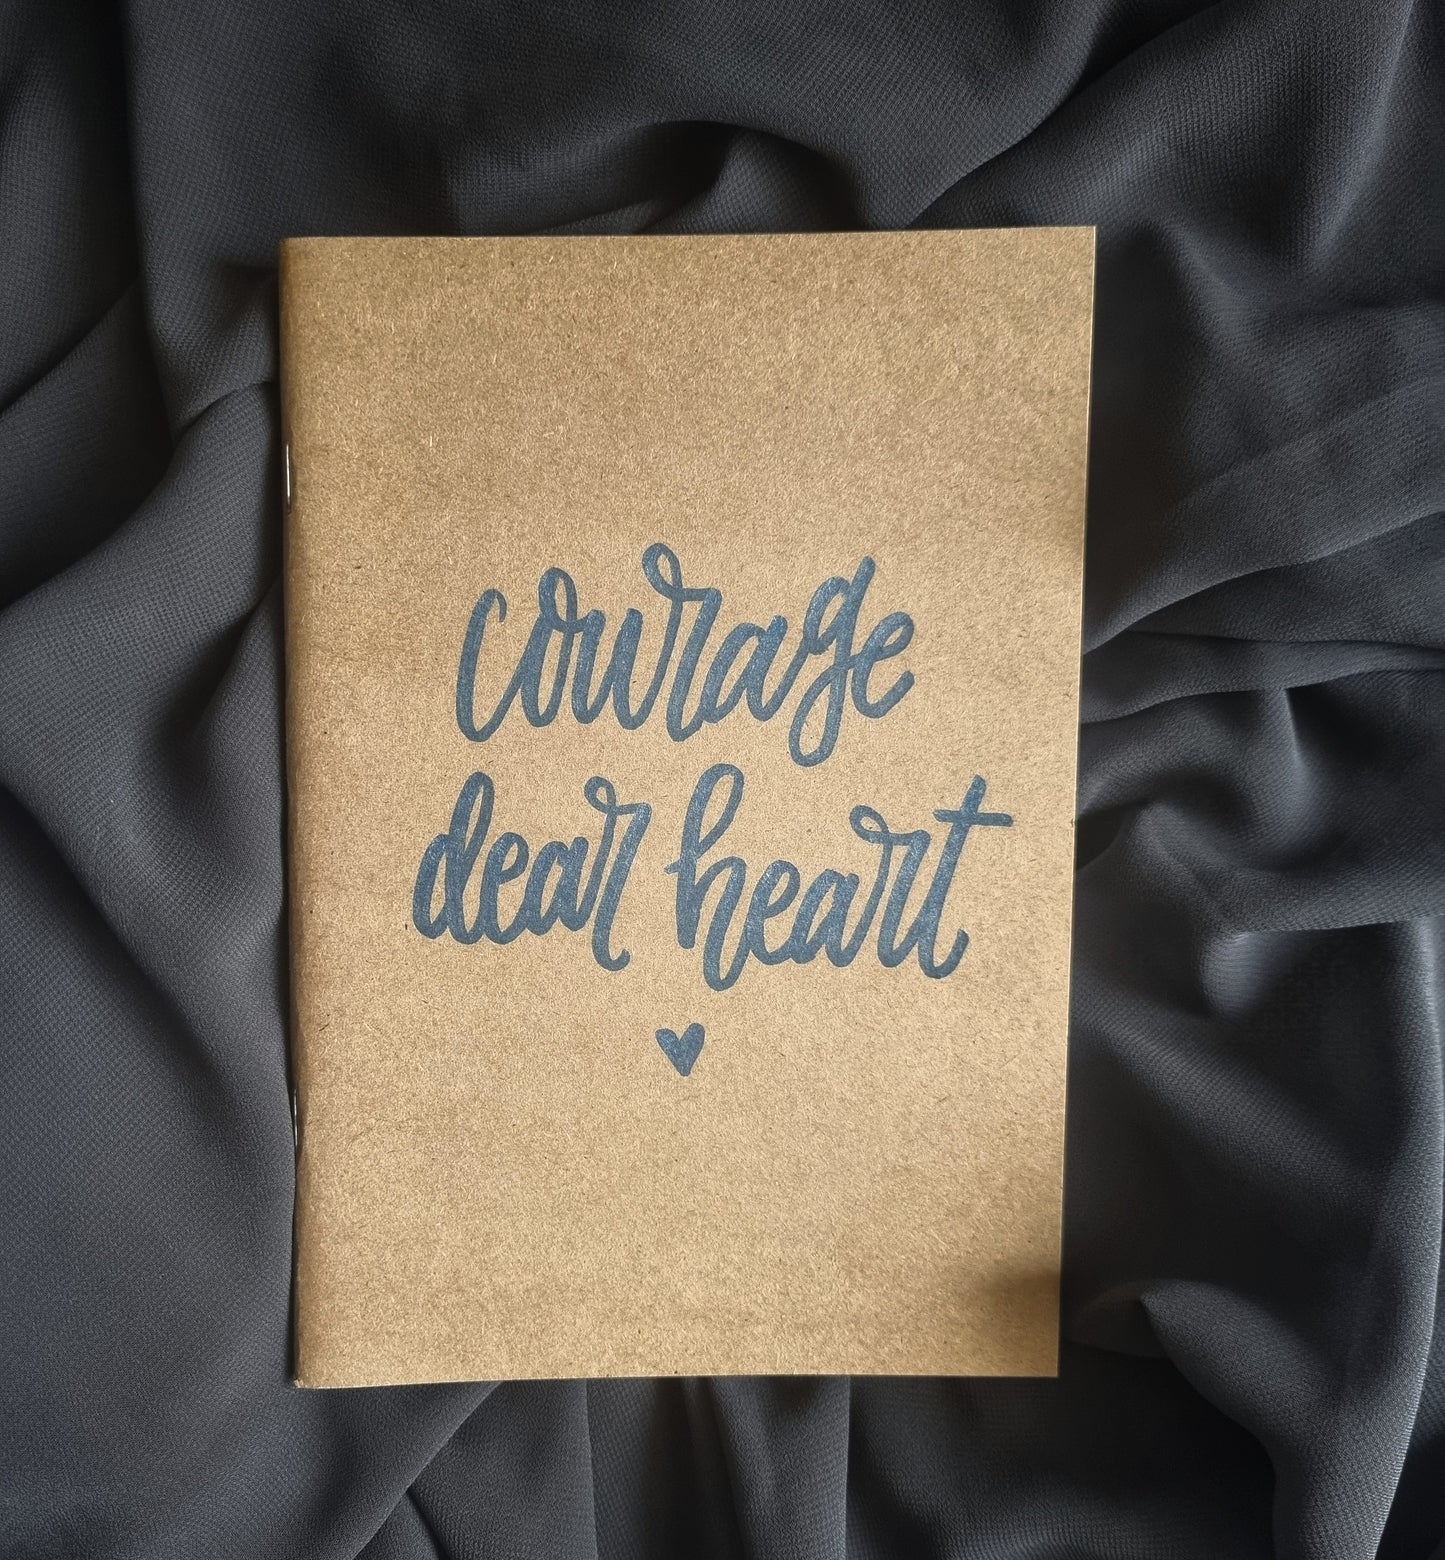 courage
dear heart